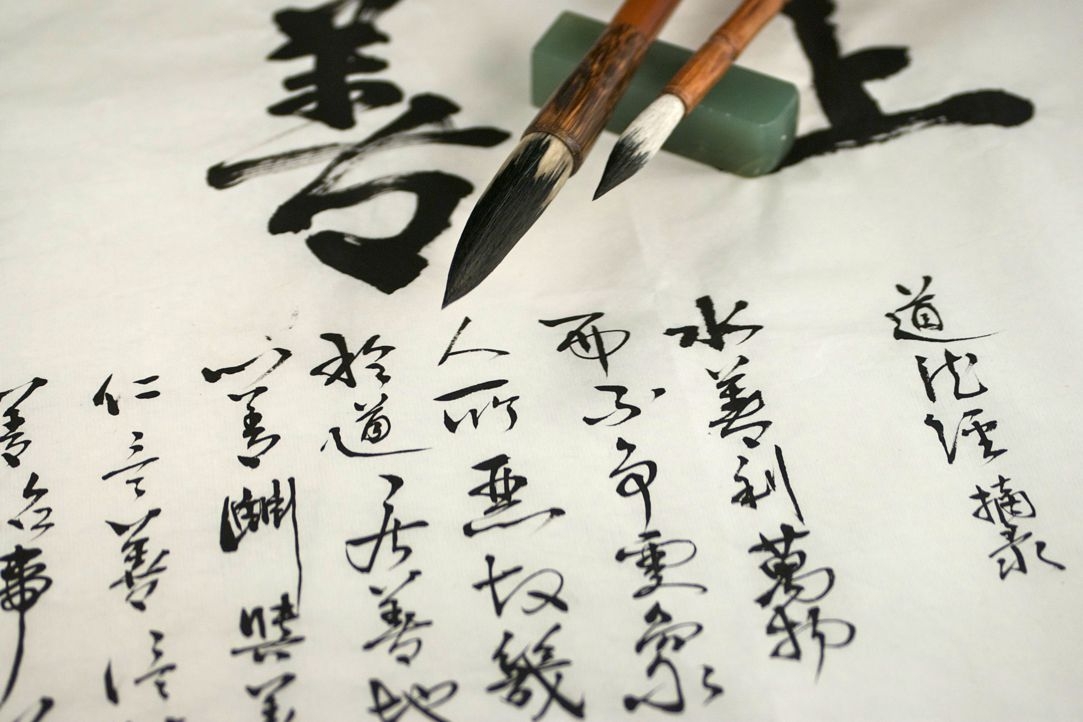 上善
道德經摘录
水善利萬物
而不争處眾
人所惡故幾
於道居善地
心善淵與善
仁言善信
善能事